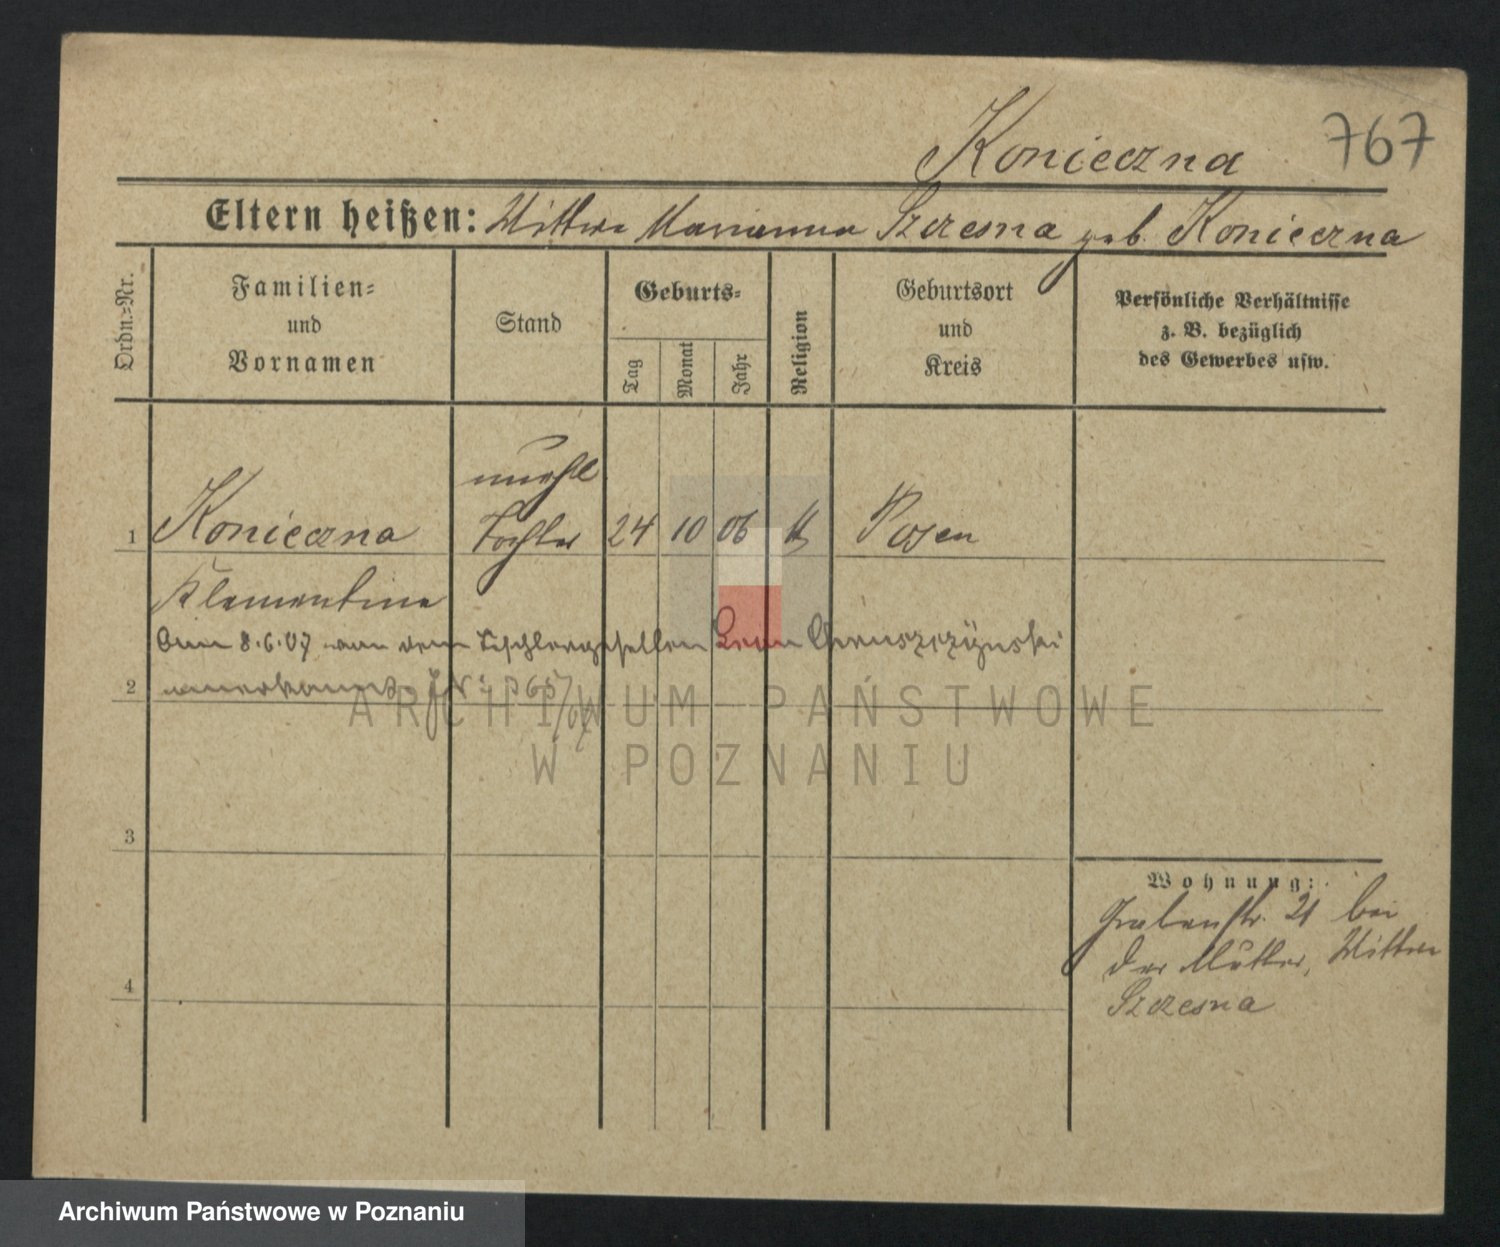 Konieczna 767
Eltern heißen: Wittwe Marianna Szczesna geb. Konieczna
Ordn.=Nr.
Familien=
und
Vornamen
Stand
Geburts=
Tag
Monat
Jahr
Religion
Geburtsort
und
Kreis
Persönliche Verhältnisse
z. B. bezüglich
des Gewerbes usw.
unehl
1 Konieczna Tochter 24 10 06 k Posen
Klementine
Am 8.6.07 von dem Tischlergesellen Leon
2 anerkannt.
3
Wohnung:
Grabenstr. 21 bei
der Mutter, Wittwe
Szczesna
4
ARCHIWUM PAŃSTWOWE
W POZNANIU
Archiwum Państwowe w Poznaniu